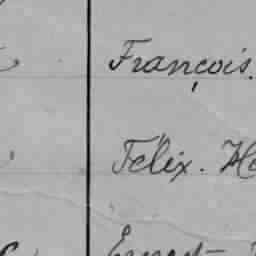 François.
Félix. He
Ernest